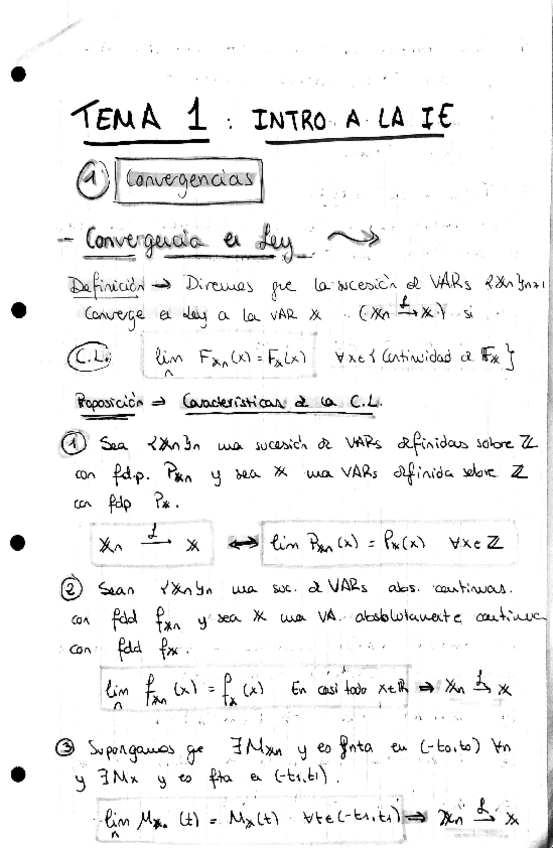 TEMA 1 : INTRO A LA IE
① Convergencias
- Convergencia en Ley
Definición → Diremos que la sucesión de VARs {Xn}n≥1
Converge en Ley a la VAR X (Xn →ℒ X) si
C.L. lim_n F_Xn(x) = F_X(x) ∀x∈{Continuidad de F_X}
Proposición → Características de la C.L.
① Sea {Xn}n una sucesión de VARs definidas sobre ℤ
con fdp. P_Xn y sea X una VARs definida sobre ℤ
con fdp P_X.
Xn →ℒ X ⟺ lim_n P_Xn(x) = P_X(x) ∀x∈ℤ
② Sean {Xn}n una suc. de VARs abs. continuas.
con fdd f_Xn y sea X una VA. absolutamente continua
con fdd f_X.
lim_n f_Xn(x) = f_X(x) En casi todo x∈ℝ ⇒ Xn →ℒ X
③ Supongamos que ∃M_Xn y es finita en (-t0,t0) ∀n
y ∃M_X y es fita en (-t1,t1).
lim_n M_Xn(t) = M_X(t) ∀t∈(-t1,t1) ⇒ Xn →ℒ X